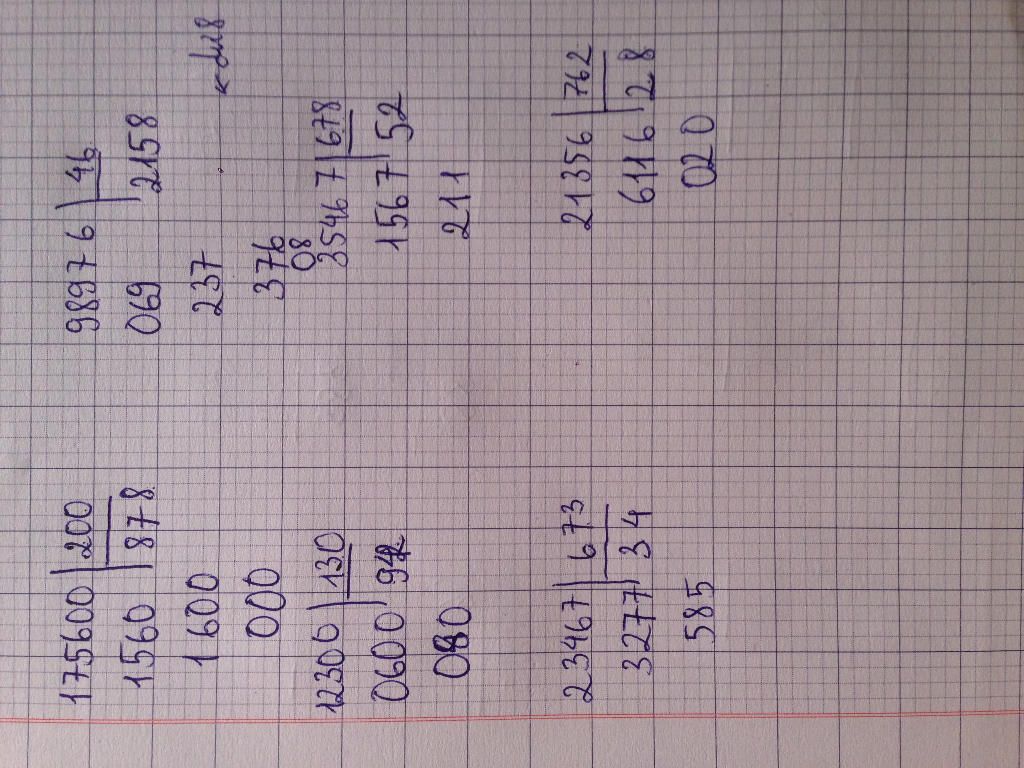 175600 | 200
1560 | 878
1600
000
98976 | 46
069 | 2158
237
376
08
12300 | 130
0600 | 94
080
35467 | 678
1567 | 52
211
23467 | 673
3277 | 34
585
21356 | 762
6116 | 28
020